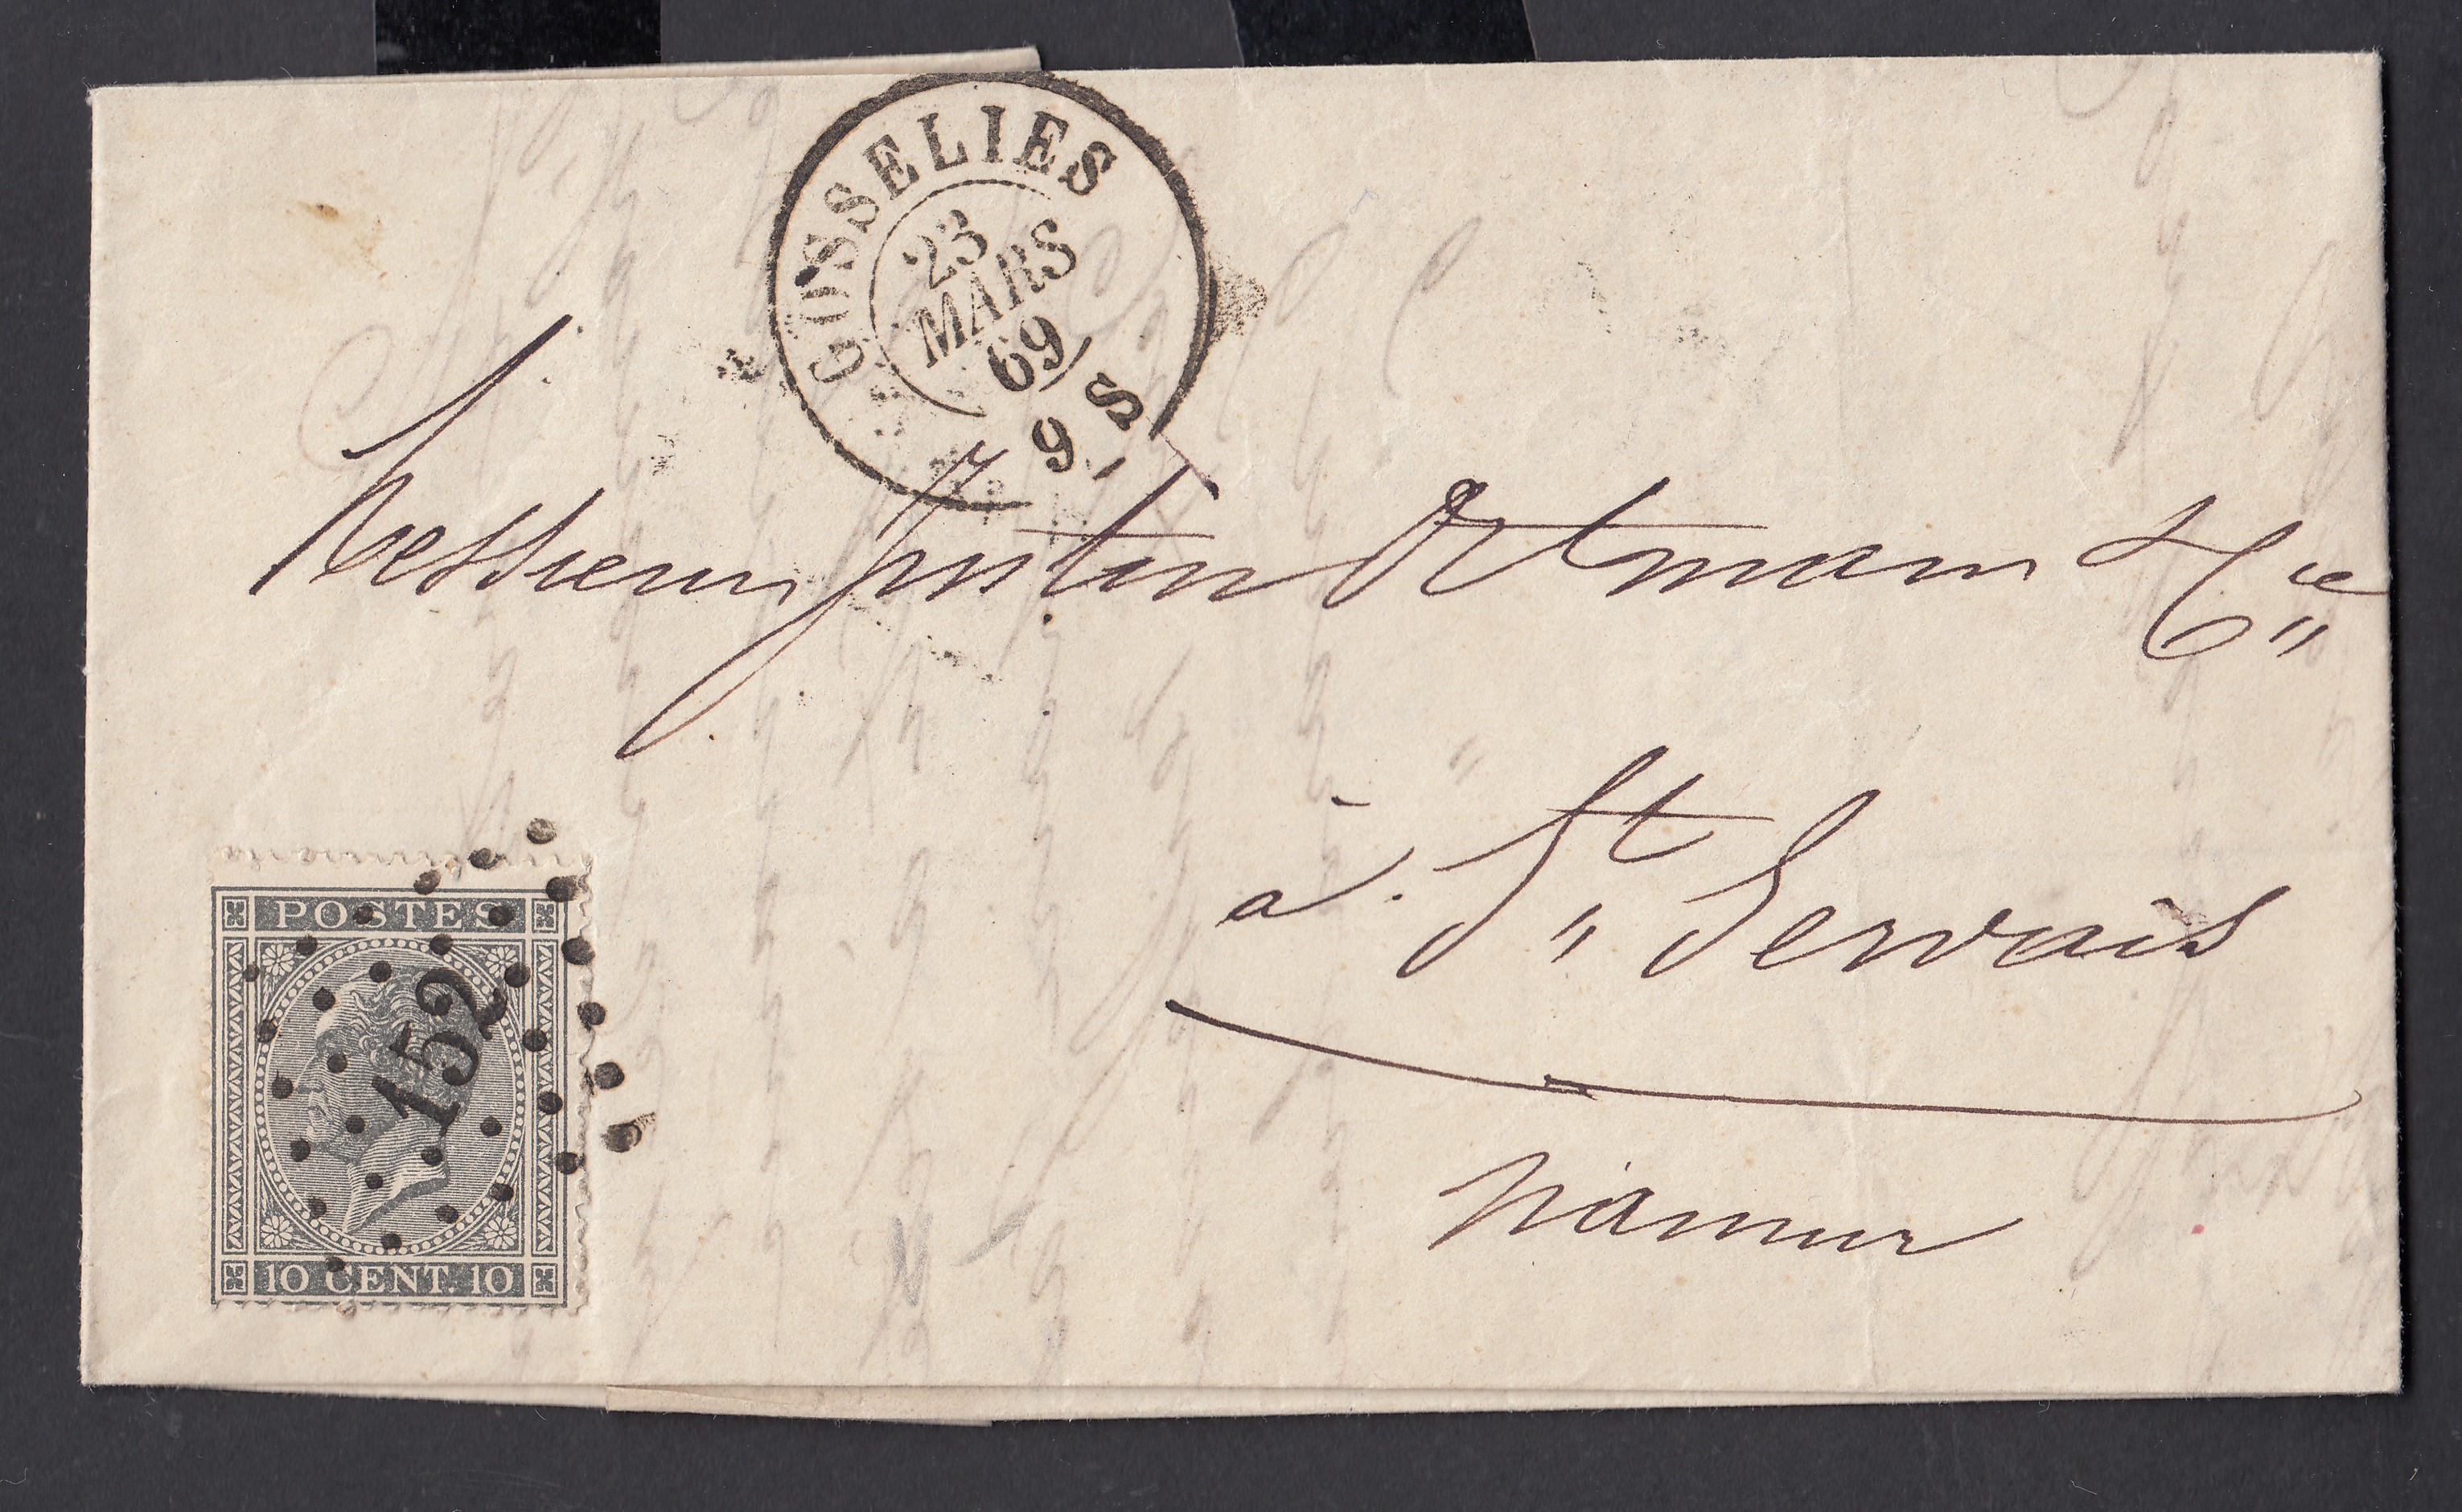 GOSSELIES
23
MARS
69
9 S
Messieurs Justin Ortmann & Cie
à St Servais
Namur
POSTES
152
10 CENT. 10